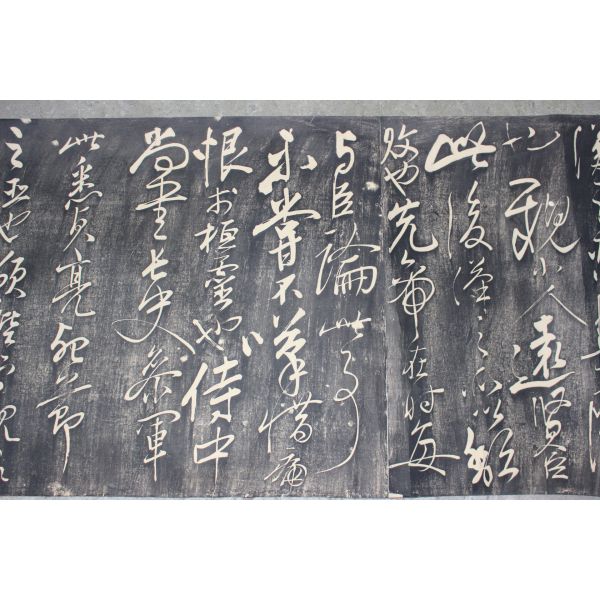 漢所以興隆
也親小人遠賢臣
此後漢之所以傾
頹也先帝在時每
與臣論此事
未嘗不歎惜痛
恨於桓靈也侍中
尚書長史參軍
此悉貞亮死節
之臣也願陛下親